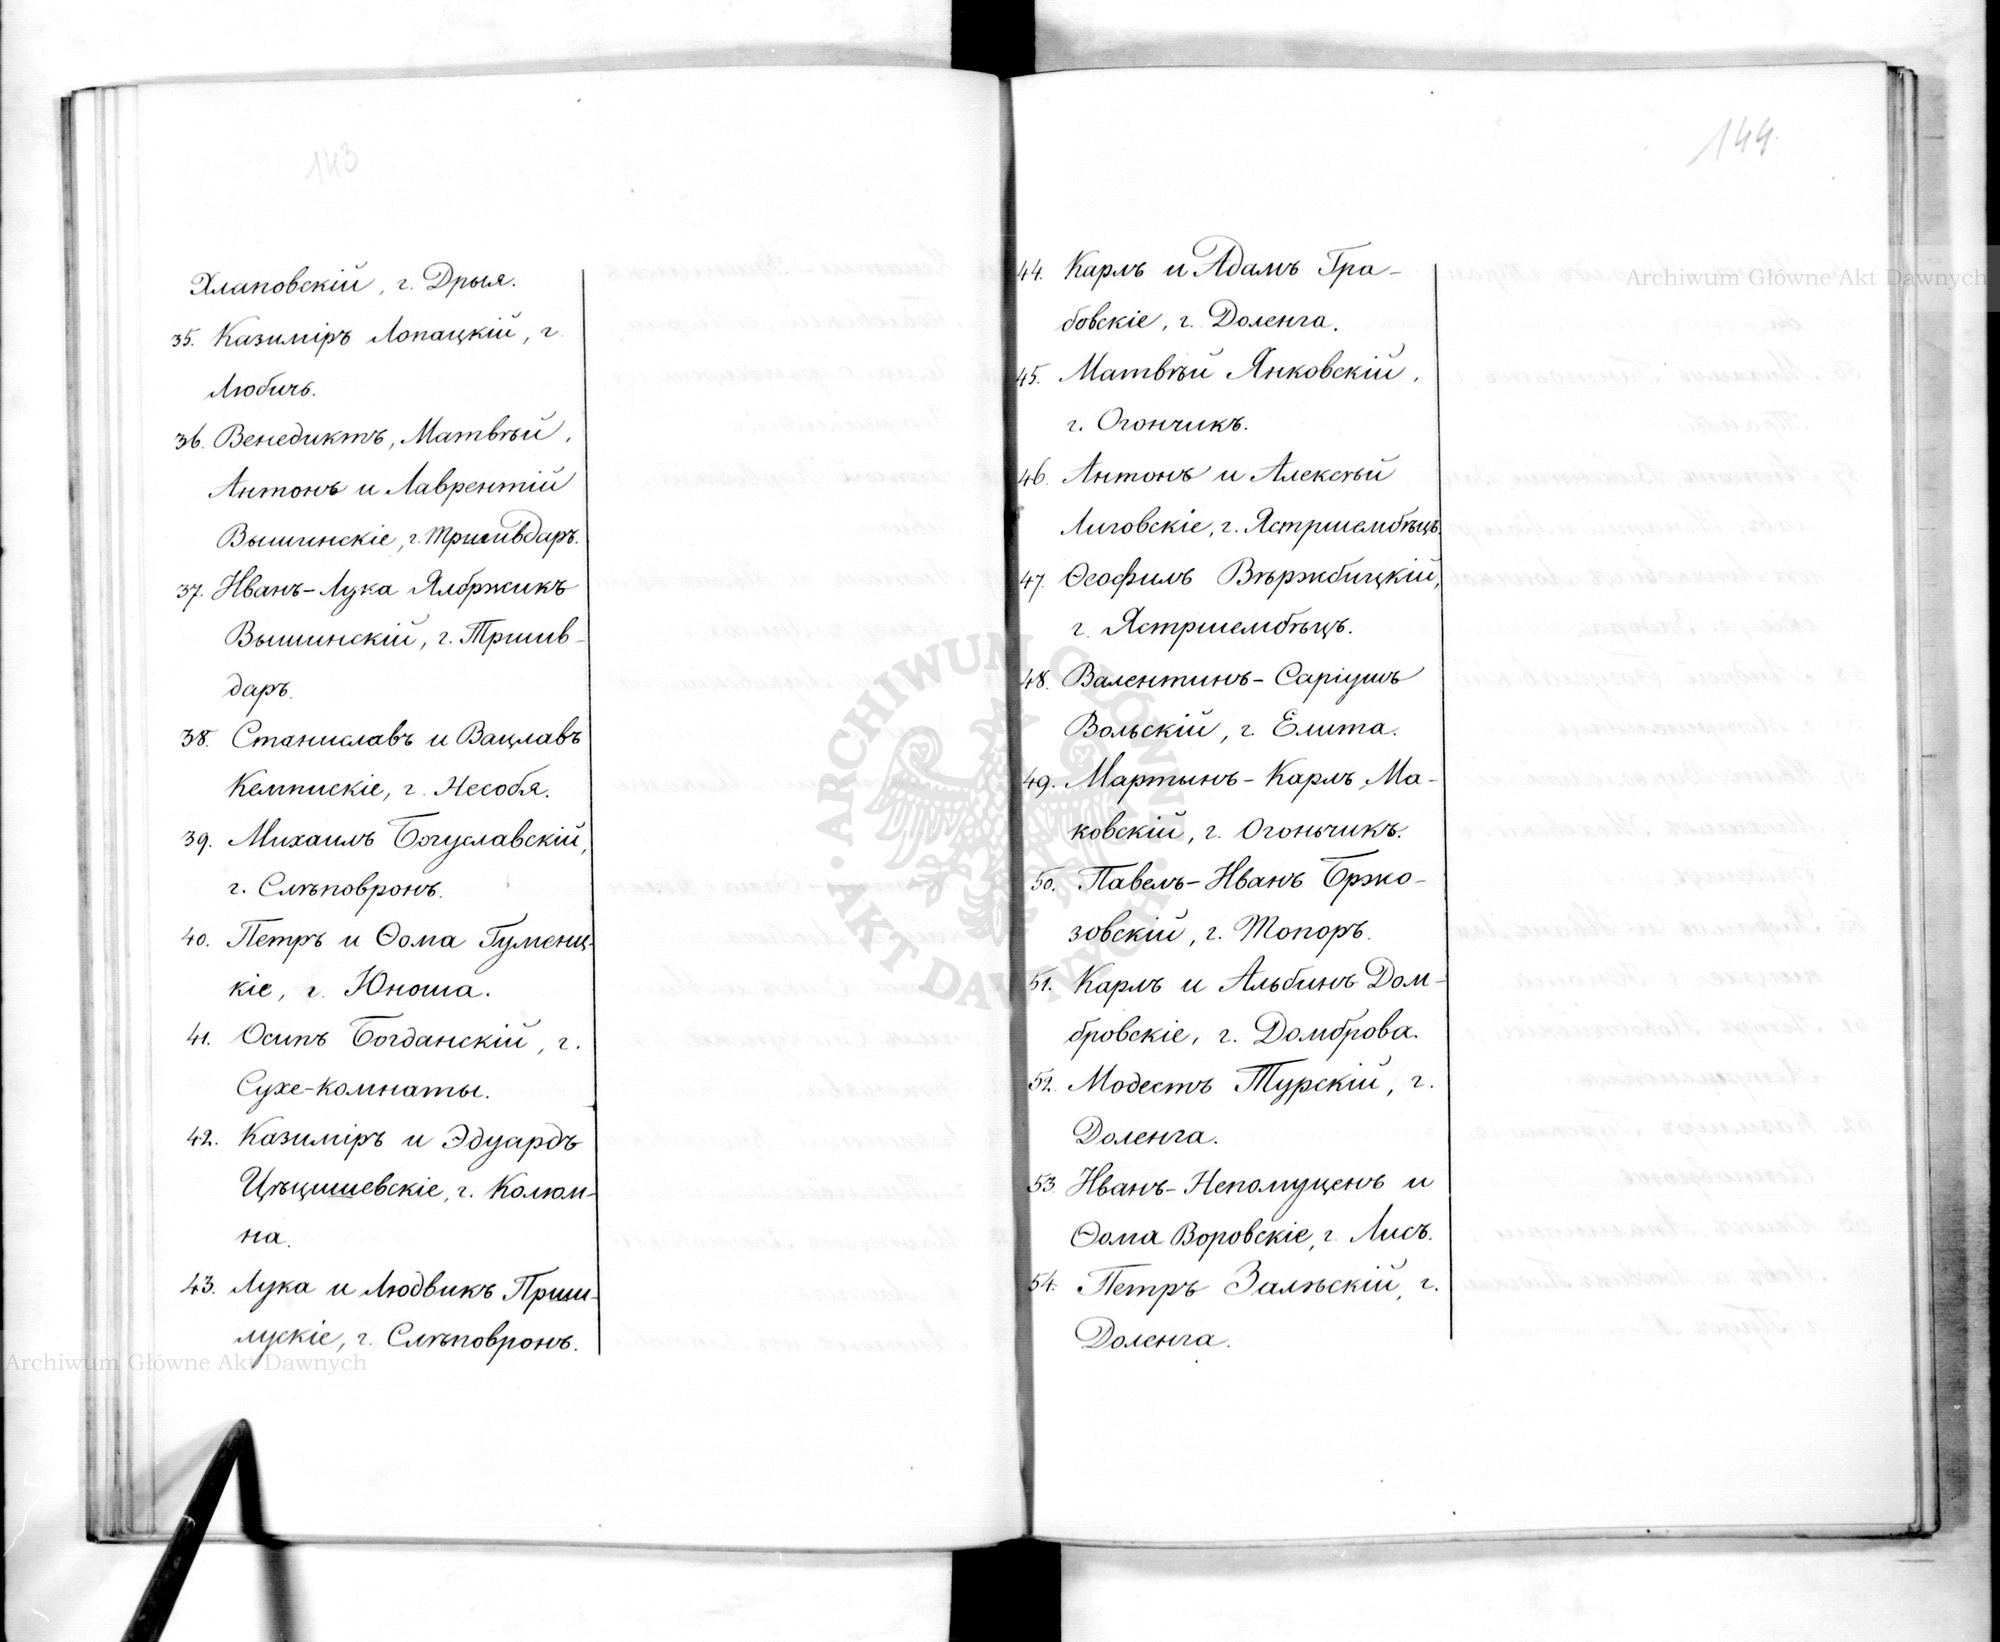 143
Хлаповскій, г. Дрыя.
35. Казиміръ Лопацкій, г.
Любичъ.
36. Венедиктъ, Матвѣй,
Антонъ и Лаврентій
Вышинскіе, г. Тришвдаръ.
37. Иванъ-Лука Ялбржикъ
Вышинскій, г. Тришв-
даръ.
38. Станиславъ и Вацлавъ
Кемпискіе, г. Несобя.
39. Михаилъ Богуславскій,
г. Слѣповронъ.
40. Петръ и Ѳома Гуменц-
кіе, г. Юноша.
41. Осипъ Богданскій, г.
Сухе-комнаты.
42. Казиміръ и Эдуардъ
Цѣцишевскіе, г. Колюм-
на.
43. Лука и Людвикъ Приш-
лускіе, г. Слѣповронъ.
144.
44. Карлъ и Адамъ Гра-
бовскіе, г. Доленга.
45. Матвѣй Янковскій,
г. Огончикъ.
46. Антонъ и Алексѣй
Лиговскіе, г. Ястршембѣцъ.
47. Ѳеофилъ Вѣржбицкій,
г. Ястршембѣцъ.
48. Валентинъ-Саріушъ
Вольскій, г. Елита.
49. Мартынъ-Карлъ Ма-
ковскій, г. Огоньчикъ.
50. Павелъ-Иванъ Бржо-
зовскій, г. Топоръ.
51. Карлъ и Альбинъ Дом-
бровскіе, г. Домброва.
52. Модестъ Турскій, г.
Доленга.
53. Иванъ-Непомуценъ и
Ѳома Воровскіе, г. Лисъ.
54. Петръ Залѣскій, г.
Доленга.
Archiwum Główne Akt Dawnych
Archiwum Główne Akt Dawnych
ARCHIWUM GŁÓWNE AKT DAWNYCH